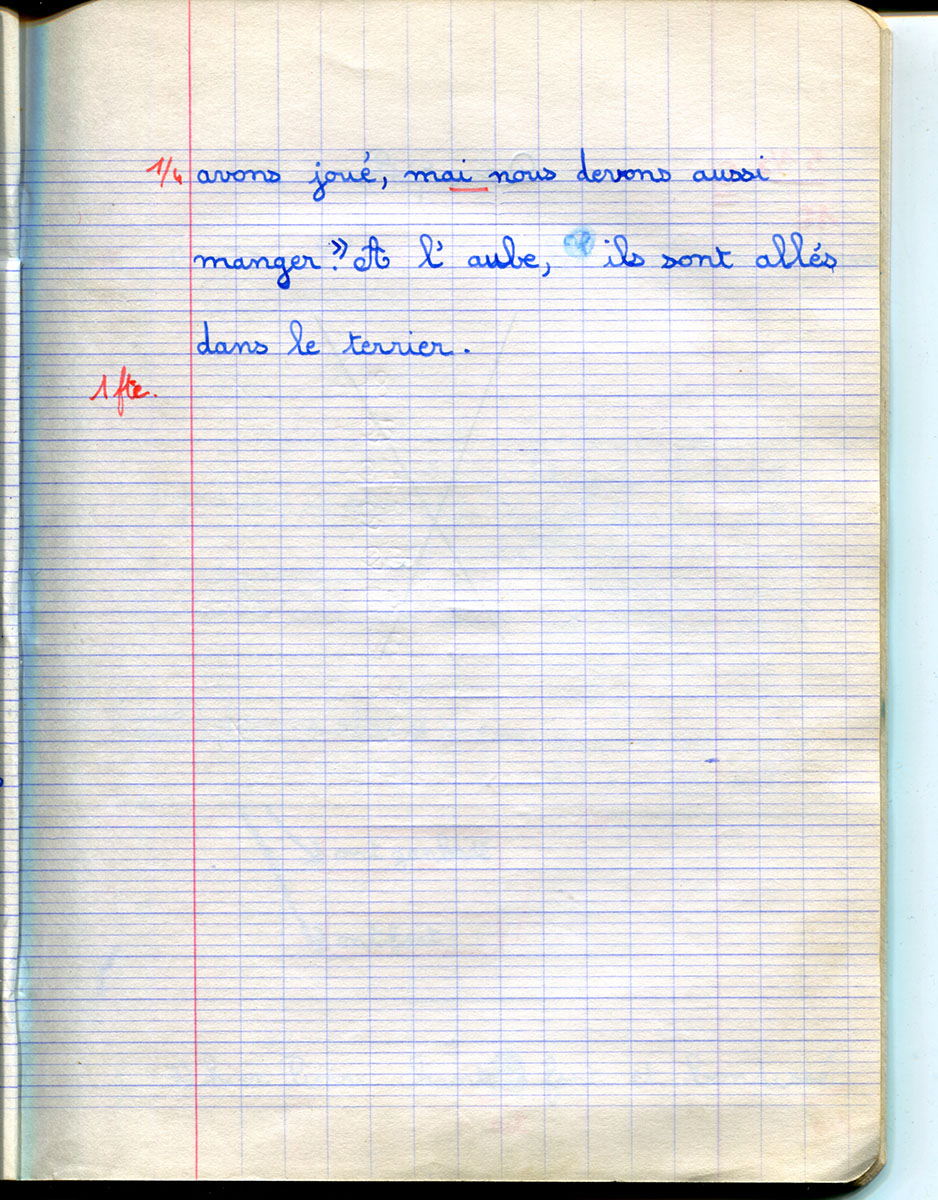 1/4 avons joué, mai nous devons aussi
manger." A l'aube, ils sont allés
dans le terrier.
1 fte.